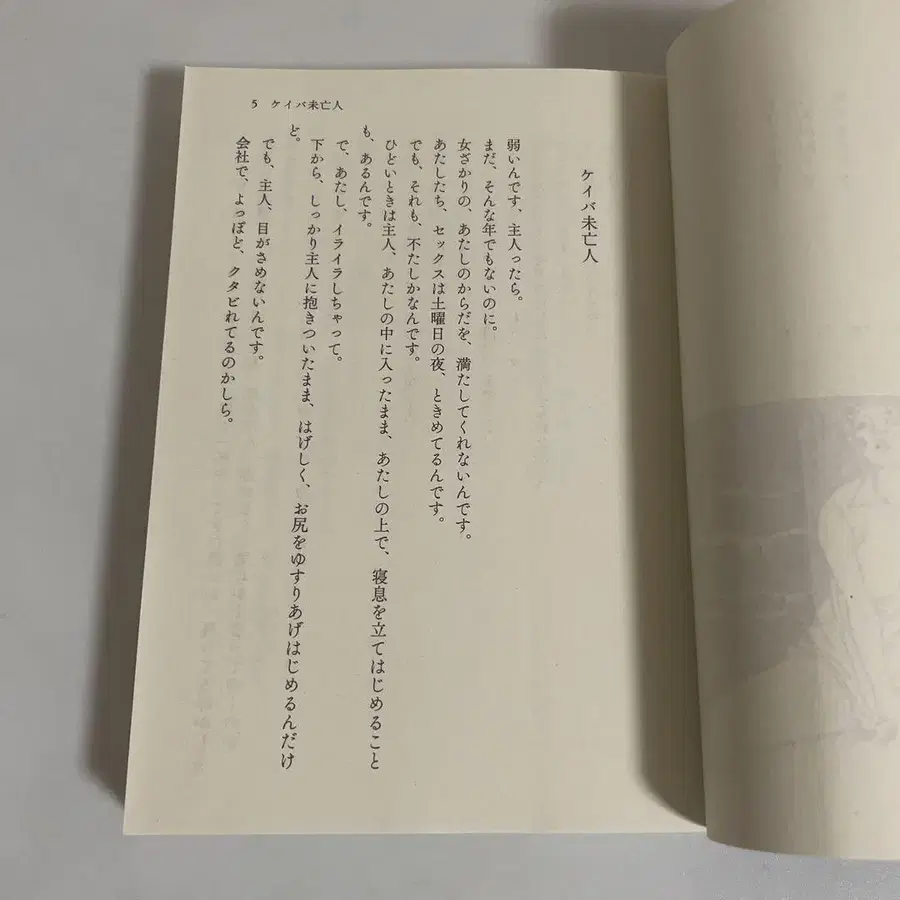 5 ケイバ未亡人
ケイバ未亡人
弱いんです、主人ったら。
まだ、そんな年でもないのに。
女ざかりの、あたしのからだを、満たしてくれないんです。
あたしたち、セックスは土曜日の夜、ときめてるんです。
でも、それも、不たしかなんです。
ひどいときは主人、あたしの中に入ったまま、あたしの上で、寝息を立てはじめること
も、あるんです。
で、あたし、イライラしちゃって。
下から、しっかり主人に抱きついたまま、はげしく、お尻をゆすりあげはじめるんだけ
ど。
でも、主人、目がさめないんです。
会社で、よっぽど、クタビれてるのかしら。